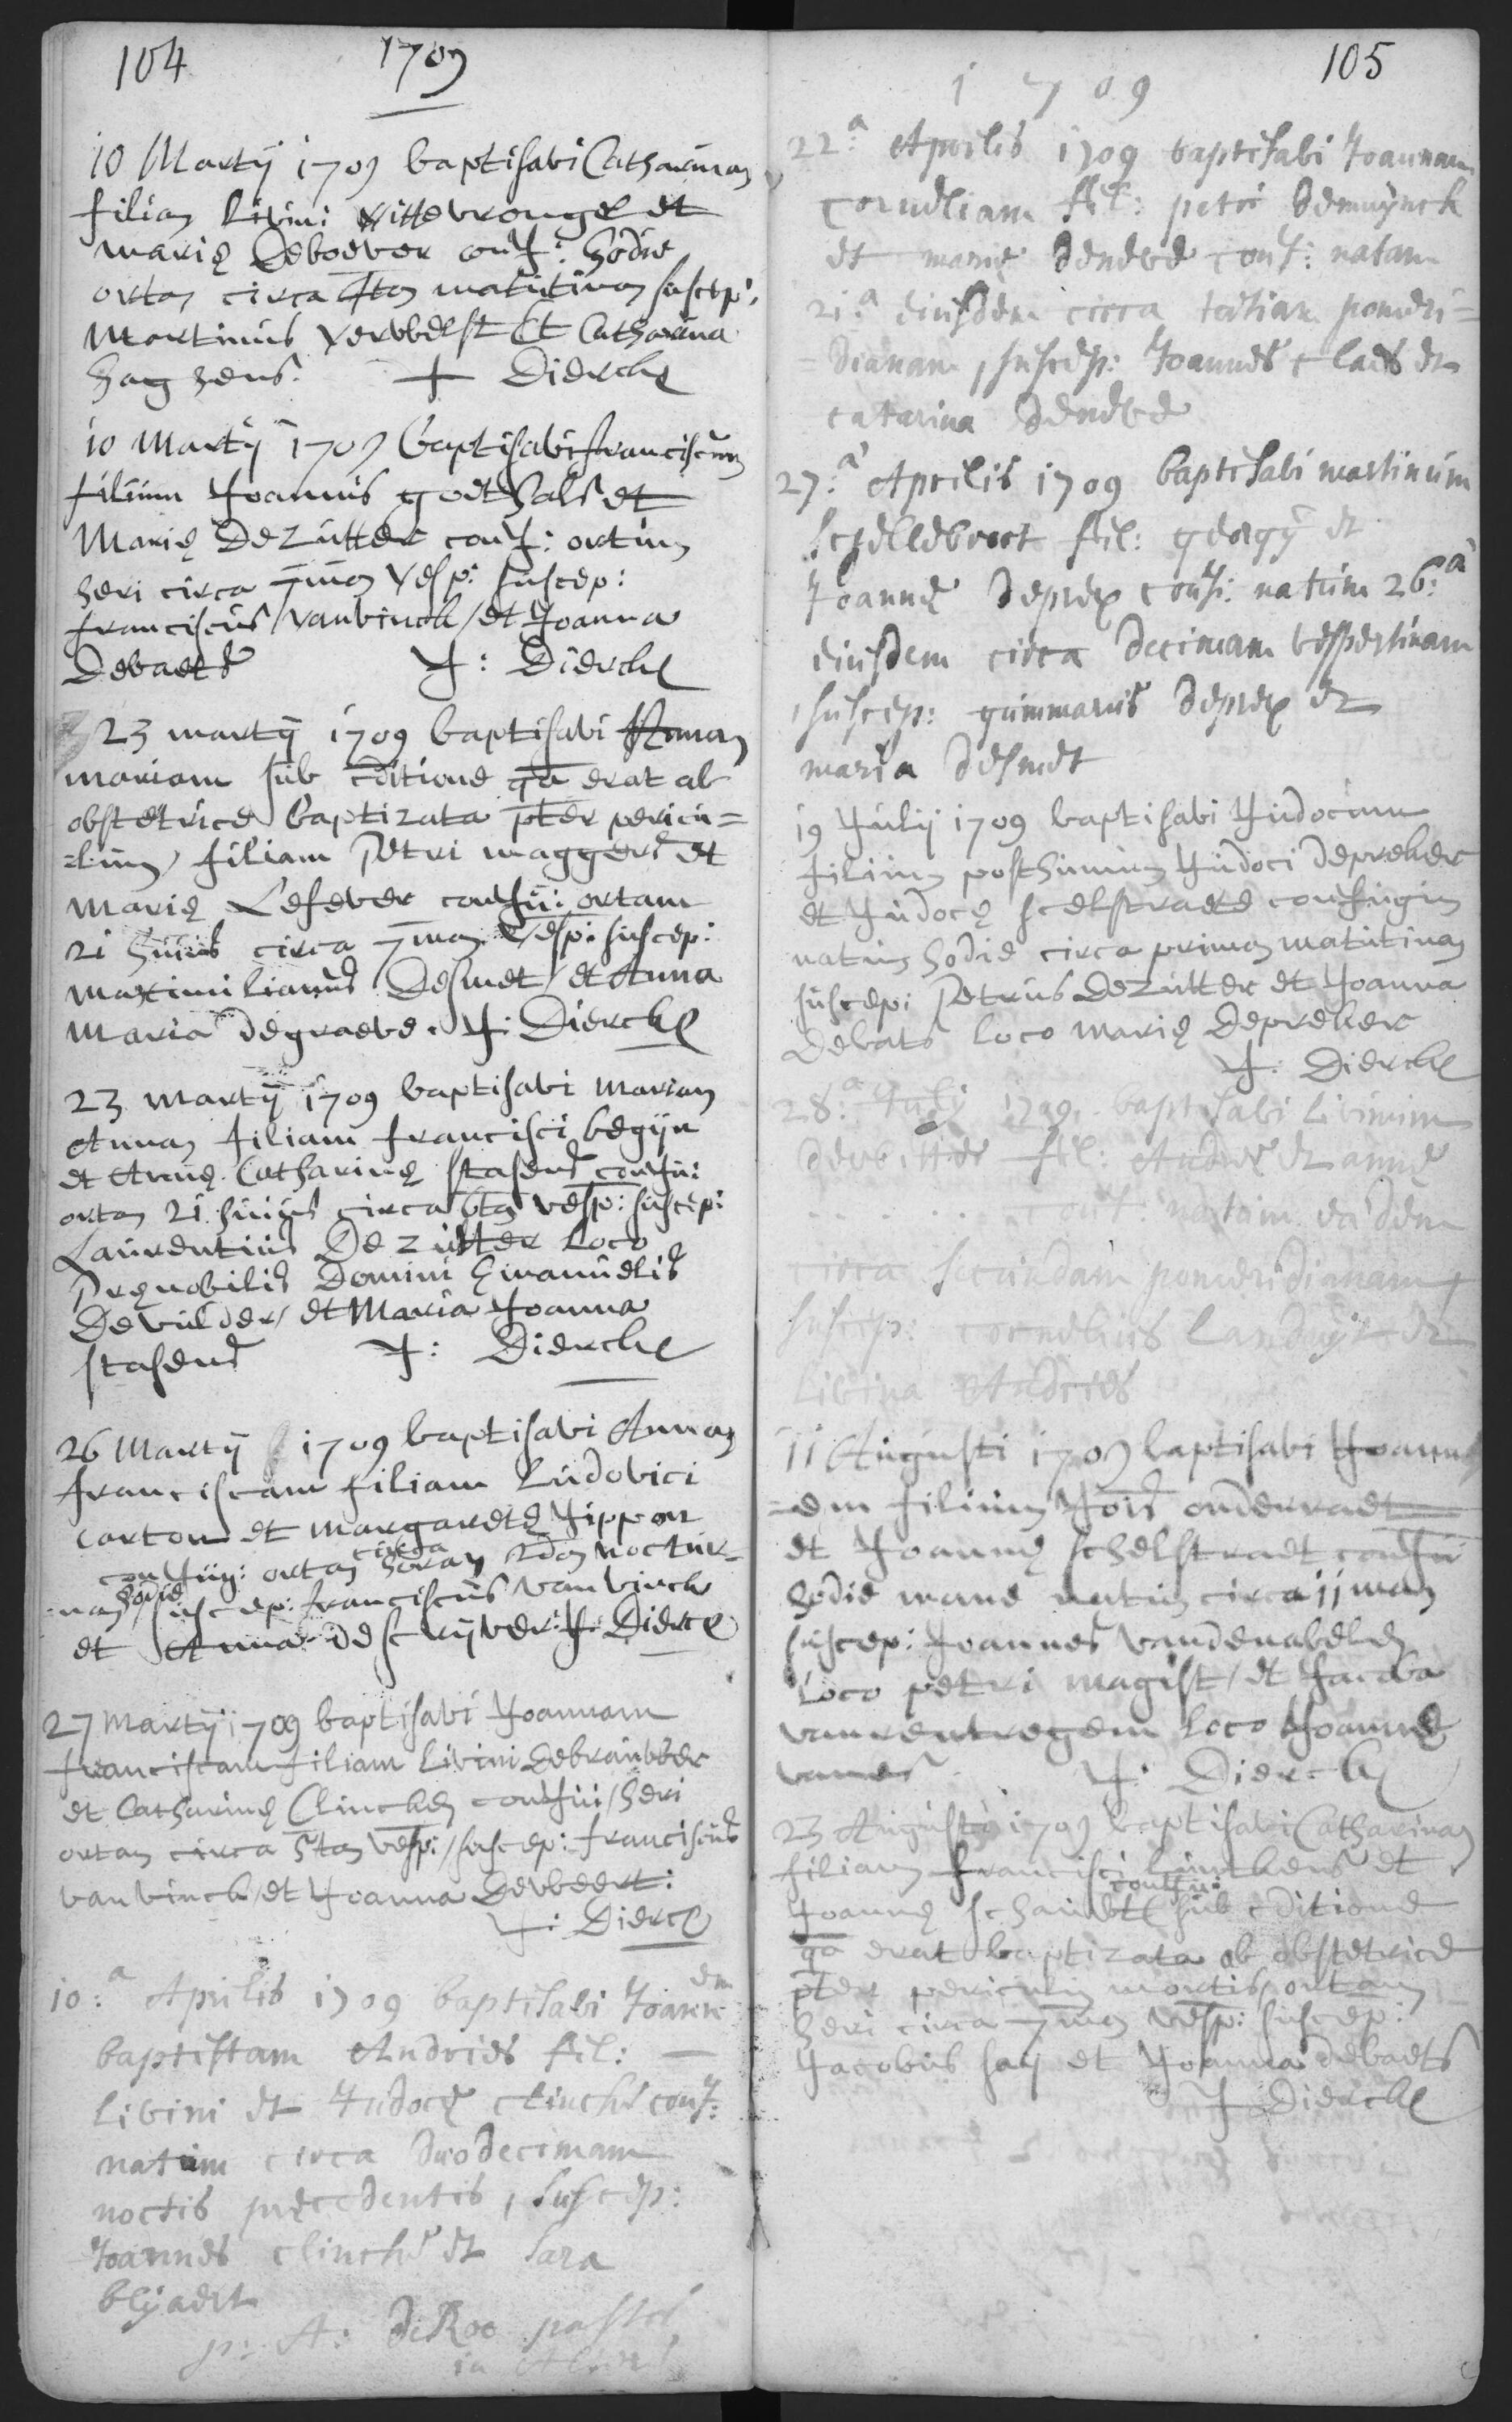 104 1709
10 Martij 1709 baptisavi Catharinam
filiam Livini Rittevronge et
marię Deboever conj: hodie
ortam circa matutinam suscep:
Martinus Ververst et Catharina
+ Dierckx
10 Martij 1709 baptisavi franciscum
filium Joannis goethals et
Marię De Zutter conj: ortum
heri circa 7mam Vesp: suscep:
franciscus / vanvinck / et Joanna
Debaets J: Dierckx
23 martij 1709 baptisavi
mariam sub cditione qa erat ab
obstetrice baptizata pter pericu=
=lum / filiam Petri maggers et
marię Lefever conju: ortam
21 huius circa 7mam Vesp: suscep:
maximilianus Desmet / et Anna
Maria degraeve. J: Dierckx
23 martij 1709 baptisavi mariam
Annam filiam francisci begijn
et Annę Catharinę stasens conju:
ortam 21 huius circa 6tam vesp: suscep:
Laurentius De Zutter loco
Pręnobilis Domini Emanuelis
Devilder / et Maria Joanna
stasens J: Dierckx
26 Martij 1709 baptisavi Annam
franciscam filiam Ludovici
carton et margaretę Jippon
conjug: ortam circa horam 2dam noctur=
=nam hodie / suscep: franciscus van vinck
et Anna deschrijver: J: Dierckx
27 Martij 1709 baptisavi Joannam
franciscam filiam Livini Debrauwer
et Catharinę Clincke conjui / heri
ortam circa 5tam vesp: / suscep: franciscus
van vinck / et Joanna Deweert:
J: Dierckx
10:a Aprilis 1709 baptisavi Joannem
baptistam Andries fil:
livini et Judocę clincke conj:
natum circa duodecimam
noctis pręcedentis, suscep:
Joannes clincke et sara
blijaert
p: A: De Roo pastor
in
105
1709
22:a Aprilis 1709 baptisavi Joannam
corneliam fil: petri Demuynck
et marię deneve conj: natam
21:a eiusdem circa tertiam pomeri=
=dianam, suscep: Joannes claes et
catarina deneve
27:a Aprilis 1709 baptisavi martinum
schellebroot fil: georgij et
Joannę deprex conj: natum 26:a
eiusdem circa decimam vespertinam
suscep: gummarus deprex et
maria desmet
19 Julij 1709 baptisavi Judocum
filium posthumum Judoci depreker
et Judocę scelstraete conjugum
natum hodie circa primam matutinam
suscep: Petrus De Zutter et Joanna
Debats loco marię depreker
J: Dierckx
28:a July 1709. baptisavi livinum
dewitte fil: Andreę et annę
. . . . . . conj: natum eadem
circa secundam pomeridianam
suscep: cornelius landuijt et
livina Andries
11 Augusti 1709 baptisavi Joann
=em filium Jois onderraet
et Joannę schelstraet conju
hodie mane natum circa 11mam
suscep: Joannes vandenabele
loco petri magist / et Jacoba
vanrentregem loco Joannę
J: Dierckx
23 Augusti 1709 baptisavi Catharinam
filiam francisci et
Joannę conju: sub cditione
qa erat baptizata ab obstetrice
pter periculum mortis / ortam
heri circa 7mam vesp: suscep:
Jacobus hay et Joanna debaets
J Dierckx